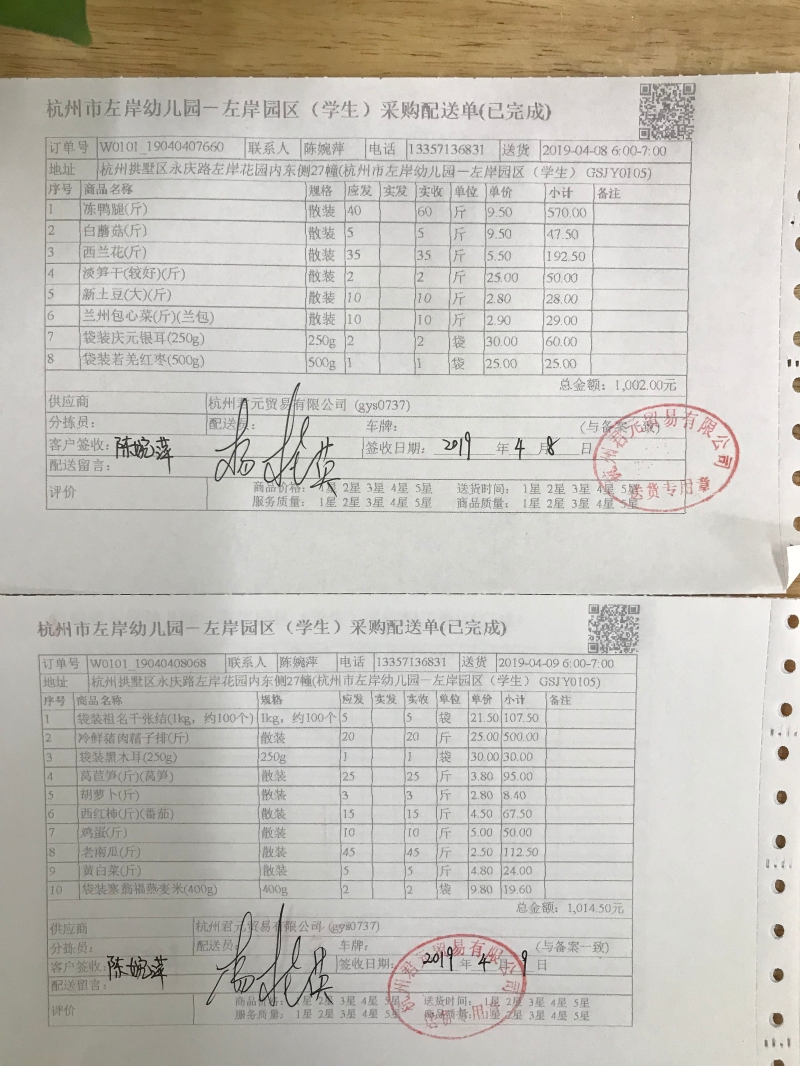 杭州市左岸幼儿园－左岸园区（学生）采购配送单(已完成)
订单号 W0101_19040407660 联系人 陈婉萍 电话 13357136831 送货 2019-04-08 6:00-7:00
地址 杭州拱墅区永庆路左岸花园内东侧27幢(杭州市左岸幼儿园－左岸园区（学生） GSJY0105)
序号 商品名称 规格 应发 实发 实收 单位 单价 小计 备注
1 冻鸭腿(斤) 散装 40 60 斤 9.50 570.00
2 白蘑菇(斤) 散装 5 5 斤 9.50 47.50
3 西兰花(斤) 散装 35 35 斤 5.50 192.50
4 淡笋干(较好)(斤) 散装 2 2 斤 25.00 50.00
5 新土豆(大)(斤) 散装 10 10 斤 2.80 28.00
6 兰州包心菜(斤)(兰包) 散装 10 10 斤 2.90 29.00
7 袋装庆元银耳(250g) 250g 2 2 袋 30.00 60.00
8 袋装若羌红枣(500g) 500g 1 1 袋 25.00 25.00
总金额：1,002.00元
供应商 杭州君元贸易有限公司 (gys0737)
分拣员： 配送员： 车牌： (与备案一致)
客户签收：陈婉萍 签收日期： 2019 年 4 月 8 日
配送留言：
评价 商品价格： 1星 2星 3星 4星 5星 送货时间： 1星 2星 3星 4星 5星
服务质量： 1星 2星 3星 4星 5星 商品质量： 1星 2星 3星 4星 5星
杭州君元贸易有限公司
送货专用章
杭州市左岸幼儿园－左岸园区（学生）采购配送单(已完成)
订单号 W0101_19040408068 联系人 陈婉萍 电话 13357136831 送货 2019-04-09 6:00-7:00
地址 杭州拱墅区永庆路左岸花园内东侧27幢(杭州市左岸幼儿园－左岸园区（学生） GSJY0105)
序号 商品名称 规格 应发 实发 实收 单位 单价 小计 备注
1 袋装祖名千张结(1kg，约100个) 1kg，约100个 5 5 袋 21.50 107.50
2 冷鲜猪肉精子排(斤) 散装 20 20 斤 25.00 500.00
3 袋装黑木耳(250g) 250g 1 1 袋 30.00 30.00
4 莴苣笋(斤)(莴笋) 散装 25 25 斤 3.80 95.00
5 胡萝卜(斤) 散装 3 3 斤 2.80 8.40
6 西红柿(斤)(番茄) 散装 15 15 斤 4.50 67.50
7 鸡蛋(斤) 散装 10 10 斤 5.00 50.00
8 老南瓜(斤) 散装 45 45 斤 2.50 112.50
9 黄白菜(斤) 散装 5 5 斤 4.80 24.00
10 袋装塞翁福燕麦米(400g) 400g 2 2 袋 9.80 19.60
总金额：1,014.50元
供应商 杭州君元贸易有限公司 (gys0737)
分拣员： 配送员： 车牌： (与备案一致)
客户签收：陈婉萍 签收日期： 2019 年 4 月 9 日
配送留言：
评价 商品价格： 1星 2星 3星 4星 5星 送货时间： 1星 2星 3星 4星 5星
服务质量： 1星 2星 3星 4星 5星 商品质量： 1星 2星 3星 4星 5星
杭州君元贸易有限公司
送货专用章